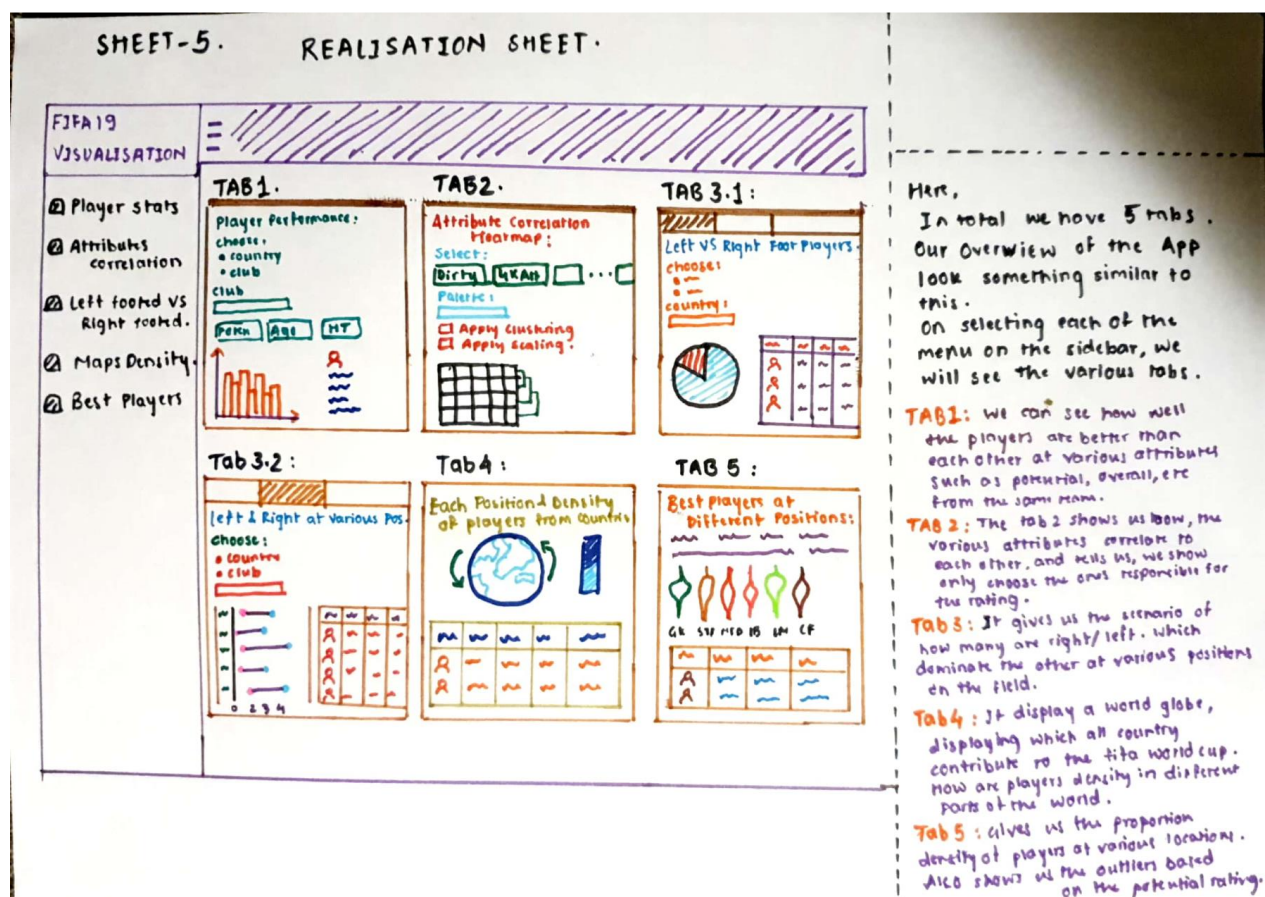 SHEET-5. REALISATION SHEET.
FIFA19
VISUALISATION
Player Stats
Attributes
correlation
Left footed vs
Right footed.
Maps Density.
Best Players
TAB1.
Player Performance:
choose:
• country
• club
club
Potn Age HT
TAB2.
Attribute Correlation
Heatmap:
Select:
Dirty GKAtt
Palette:
Apply clustring
Apply scaling.
TAB 3.1:
Left VS Right Foot Players.
choose:
country:
Tab 3.2:
left & Right at Various Pos.
choose:
• country
• club
0 2 3 4
Tab4:
Each Position & Density
of players from countris
TAB 5:
Best players at
Different Positions:
GK LM CF
Here,
In total we have 5 tabs.
Our Overwiew of the App
look something similar to
this.
On selecting each of the
menu on the sidebar, we
will see the various tabs.
TAB1: we can see how well
the players are better than
each other at various attributes
such as potential, overall, etc
from the same team.
TAB 2: The tab 2 shows us how, the
various attributes correlate to
each other, and tells us, we show
only choose the ones responcible for
the rating.
Tab 3: It gives us the scenario of
how many are right/left. Which
dominate the other at various positions
on the field.
Tab4: It display a world globe,
displaying which all country
contribute to the fifa world cup.
How are players density in different
parts of the world.
Tab 5: Gives us the proportion
density of players at various locations.
Also shows us the outliers based
on the potential rating.